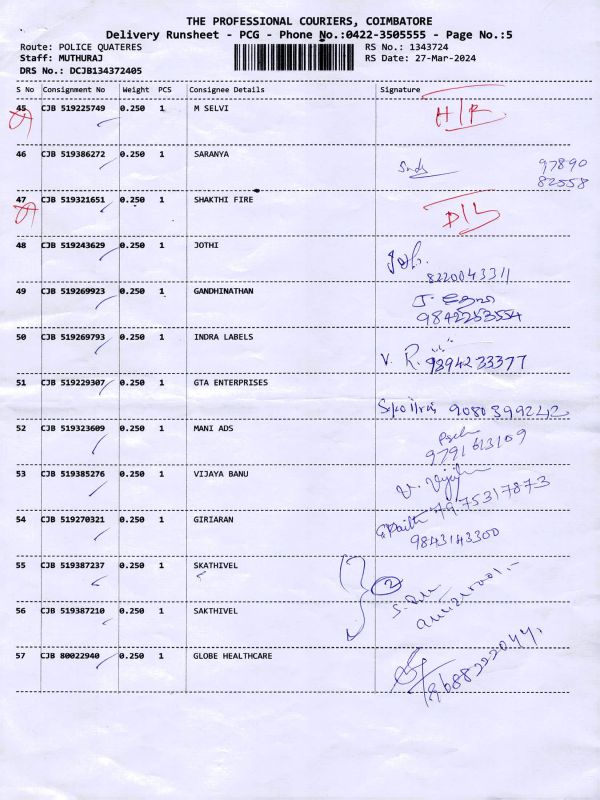 THE PROFESSIONAL COURIERS, COIMBATORE
Delivery Runsheet - PCG - Phone No.:0422-3505555 - Page No.:5
Route: POLICE QUATERES RS No.: 1343724
Staff: MUTHURAJ RS Date: 27-Mar-2024
DRS No.: DCJB134372405
S No Consignment No Weight PCS Consignee Details Signature
45 CJB 519225749 0.250 1 M SELVI
46 CJB 519386272 0.250 1 SARANYA 97890
82558
47 CJB 519321651 0.250 1 SHAKTHI FIRE D/L
48 CJB 519243629 0.250 1 JOTHI
8220043311
49 CJB 519269923 0.250 1 GANDHINATHAN
9842253554
50 CJB 519269793 0.250 1 INDRA LABELS V. R. 9394233377
51 CJB 519229307 0.250 1 GTA ENTERPRISES 9080399242
52 CJB 519323609 0.250 1 MANI ADS
9791613109
53 CJB 519385276 0.250 1 VIJAYA BANU
7975317873
54 CJB 519270321 0.250 1 GIRIARAN
9843143300
55 CJB 519387237 0.250 1 SKATHIVEL 2
56 CJB 519387210 0.250 1 SAKTHIVEL
57 CJB 80022940 0.250 1 GLOBE HEALTHCARE